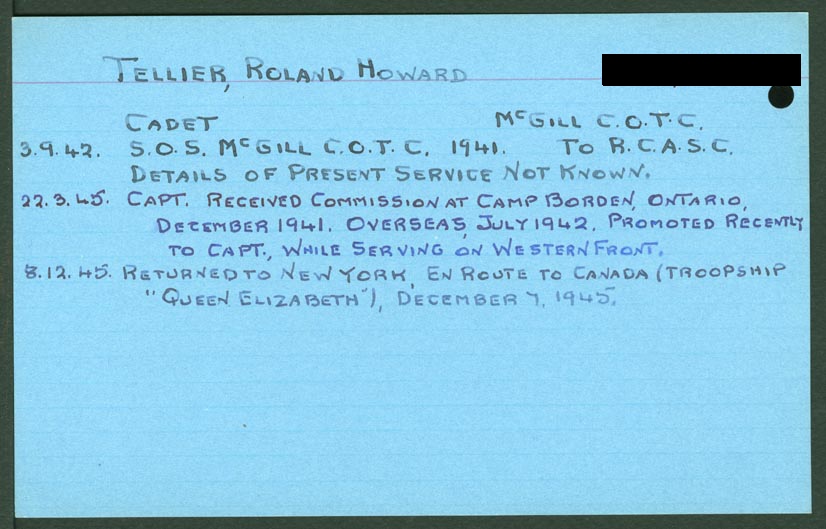 TELLIER, ROLAND HOWARD
CADET McGILL C.O.T.C.
3.9.42. S.O.S. McGILL C.O.T.C. 1941. TO R.C.A.S.C.
DETAILS OF PRESENT SERVICE NOT KNOWN.
22.3.45. CAPT. RECEIVED COMMISSION AT CAMP BORDEN, ONTARIO,
DECEMBER 1941. OVERSEAS, JULY 1942. PROMOTED RECENTLY
TO CAPT., WHILE SERVING ON WESTERN FRONT.
8.12.45. RETURNED TO NEW YORK, EN ROUTE TO CANADA (TROOPSHIP
"QUEEN ELIZABETH"), DECEMBER 7, 1945.